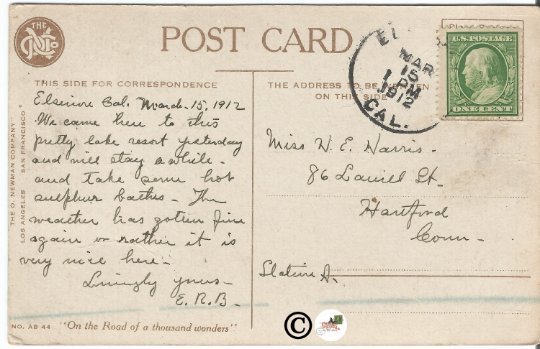 THE
POST CARD
THIS SIDE FOR CORRESPONDENCE
Elsinore Cal. March. 15, 1912
We came here to this
pretty lake resort yesterday
and will stay a while -
and take some hot
sulphur baths - The
weather has gotten fine
again or rather it is
very nice here -
Lovingly yours -
E. R. B -
THE O. NEWMAN COMPANY
LOS ANGELES SAN FRANCISCO
NO. AB 44 "On the Road of a thousand wonders"
THE ADDRESS TO BE WRITTEN
ON THIS SIDE
MAR
15
1 PM
1912
CAL.
U.S. POSTAGE
ONE CENT
Miss W. E. Harris -
86 St -
Hartford
Conn -
Station A.
©